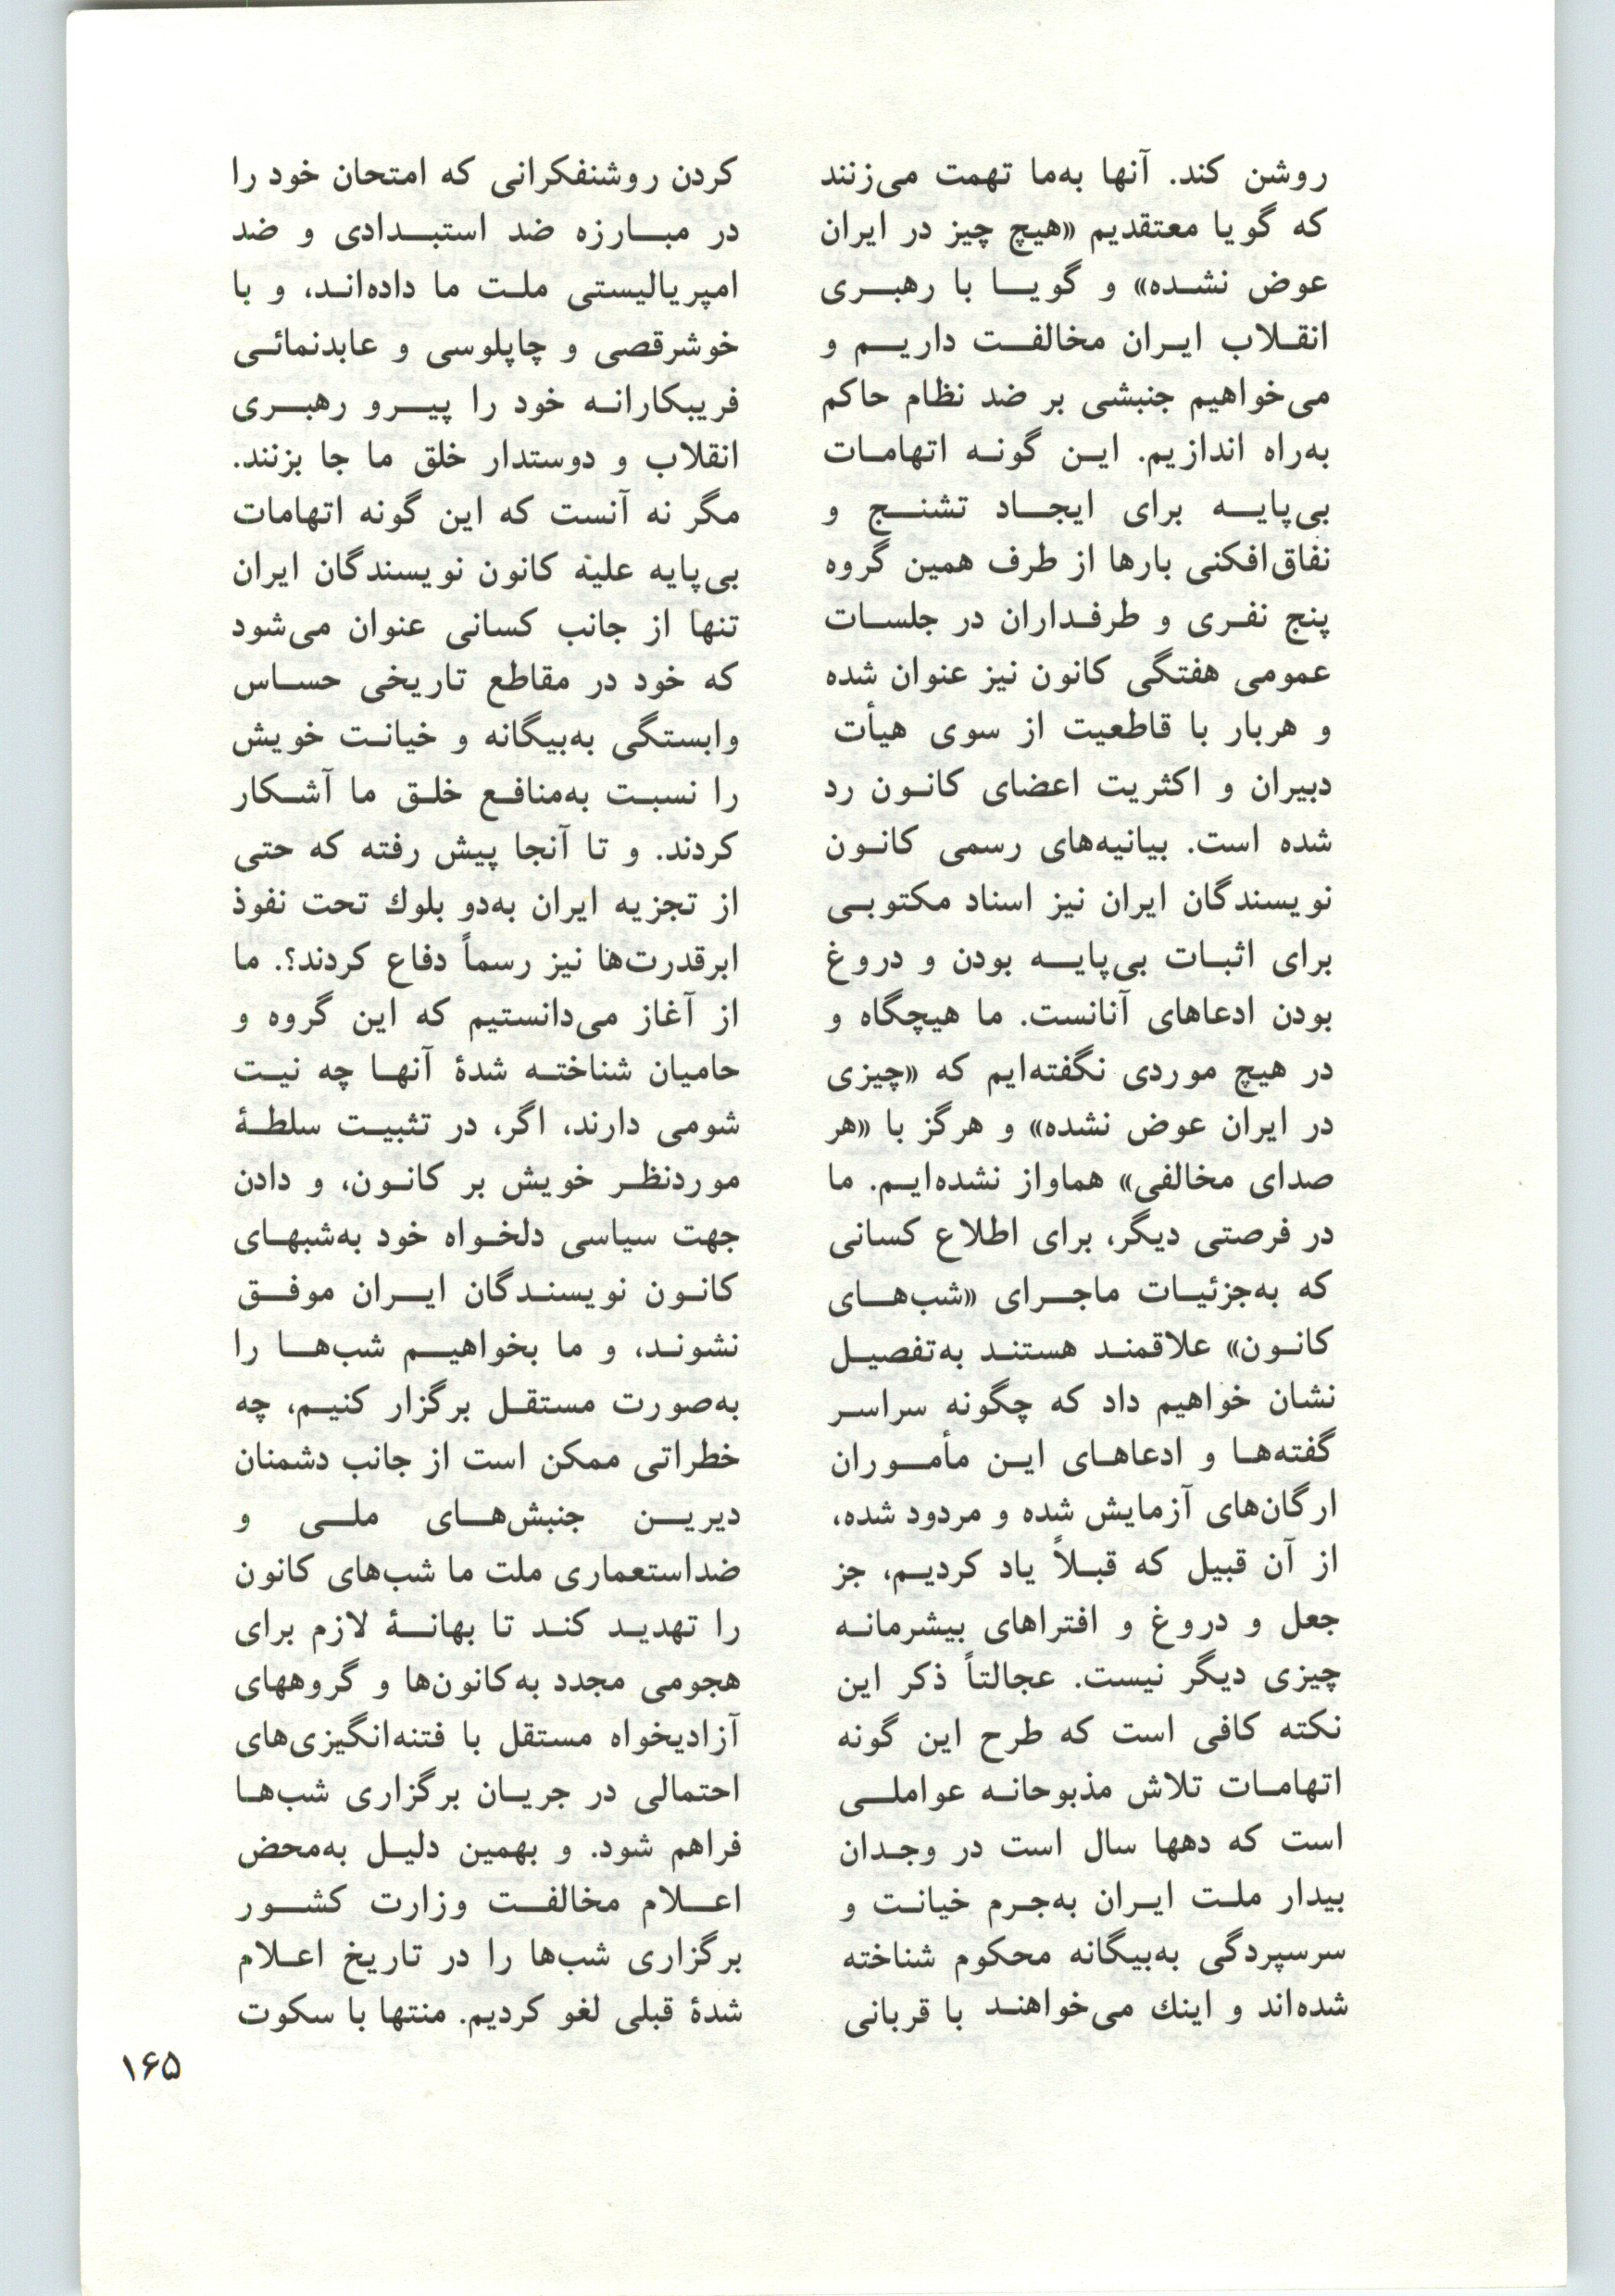 روشن کند. آنها به‌ما تهمت می‌زنند
که گویا معتقدیم «هیچ چیز در ایران
عوض نشده» و گویا با رهبری
انقلاب ایران مخالفت داریم و
می‌خواهیم جنبشی بر ضد نظام حاکم
به‌راه اندازیم. این گونه اتهامات
بی‌پایه برای ایجاد تشنج و
نفاق‌افکنی بارها از طرف همین گروه
پنج نفری و طرفداران در جلسات
عمومی هفتگی کانون نیز عنوان شده
و هربار با قاطعیت از سوی هیأت
دبیران و اکثریت اعضای کانون رد
شده است. بیانیه‌های رسمی کانون
نویسندگان ایران نیز اسناد مکتوبی
برای اثبات بی‌پایه بودن و دروغ
بودن ادعاهای آنانست. ما هیچگاه و
در هیچ موردی نگفته‌ایم که «چیزی
در ایران عوض نشده» و هرگز با «هر
صدای مخالفی» هماواز نشده‌ایم. ما
در فرصتی دیگر، برای اطلاع کسانی
که به‌جزئیات ماجرای «شب‌های
کانون» علاقمند هستند به‌تفصیل
نشان خواهیم داد که چگونه سراسر
گفته‌ها و ادعاهای این مأموران
ارگان‌های آزمایش شده و مردود شده،
از آن قبیل که قبلاً یاد کردیم، جز
جعل و دروغ و افتراهای بیشرمانه
چیزی دیگر نیست. عجالتاً ذکر این
نکته کافی است که طرح این گونه
اتهامات تلاش مذبوحانه عواملی
است که دهها سال است در وجدان
بیدار ملت ایران به‌جرم خیانت و
سرسپردگی به‌بیگانه محکوم شناخته
شده‌اند و اینك می‌خواهند با قربانی
کردن روشنفکرانی که امتحان خود را
در مبارزه ضد استبدادی و ضد
امپریالیستی ملت ما داده‌اند، و با
خوشرقصی و چاپلوسی و عابدنمائی
فریبکارانه خود را پیرو رهبری
انقلاب و دوستدار خلق ما جا بزنند.
مگر نه آنست که این گونه اتهامات
بی‌پایه علیه کانون نویسندگان ایران
تنها از جانب کسانی عنوان می‌شود
که خود در مقاطع تاریخی حساس
وابستگی به‌بیگانه و خیانت خویش
را نسبت به‌منافع خلق ما آشکار
کردند. و تا آنجا پیش رفته که حتی
از تجزیه ایران به‌دو بلوك تحت نفوذ
ابرقدرت‌ها نیز رسماً دفاع کردند؟. ما
از آغاز می‌دانستیم که این گروه و
حامیان شناخته شدهٔ آنها چه نیت
شومی دارند، اگر، در تثبیت سلطهٔ
موردنظر خویش بر کانون، و دادن
جهت سیاسی دلخواه خود به‌شبهای
کانون نویسندگان ایران موفق
نشوند، و ما بخواهیم شب‌ها را
به‌صورت مستقل برگزار کنیم، چه
خطراتی ممکن است از جانب دشمنان
دیرین جنبش‌های ملی و
ضداستعماری ملت ما شب‌های کانون
را تهدید کند تا بهانهٔ لازم برای
هجومی مجدد به‌کانون‌ها و گروههای
آزادیخواه مستقل با فتنه‌انگیزی‌های
احتمالی در جریان برگزاری شب‌ها
فراهم شود. و بهمین دلیل به‌محض
اعلام مخالفت وزارت کشور
برگزاری شب‌ها را در تاریخ اعلام
شدهٔ قبلی لغو کردیم. منتها با سکوت
۱۶۵